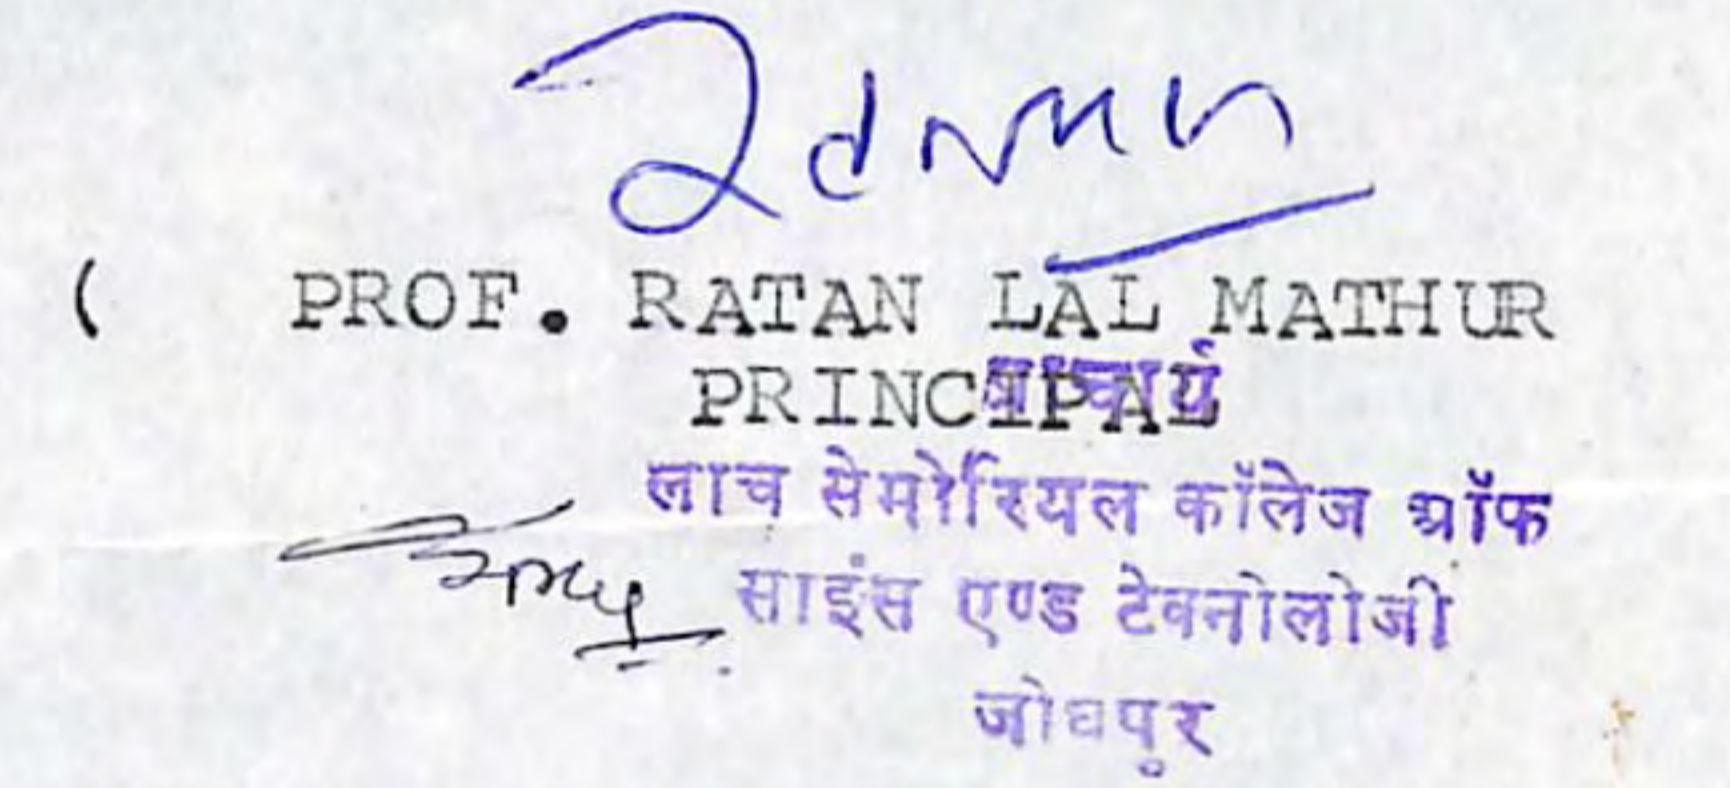 ( PROF. RATAN LAL MATHUR
PRINCIPAL
प्राचार्य
लाच मेमोरियल कॉलेज ऑफ
साइंस एण्ड टेक्नोलोजी
जोधपुर